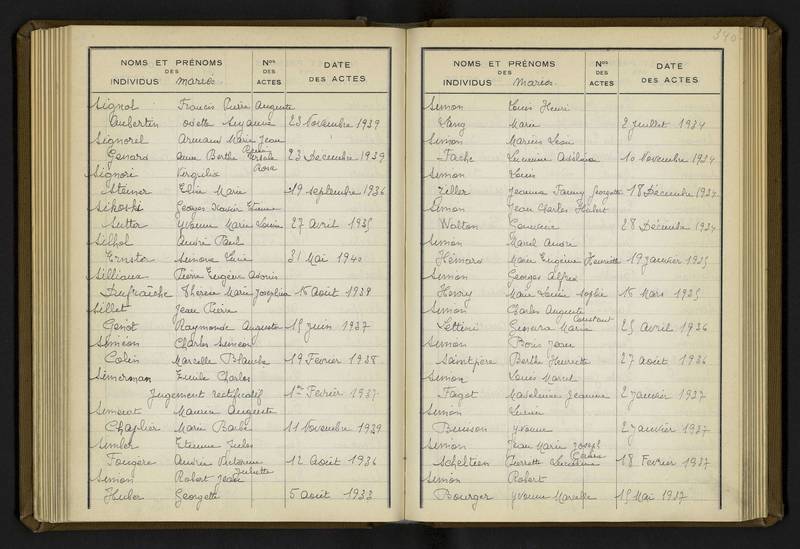 NOMS ET PRÉNOMS DES INDIVIDUS mariés
Nos DES ACTES
DATE DES ACTES
Signol Francis Pierre Auguste
Aubertin Odette 23 Novembre 1939
Signorel Armand Marie Jean
Genard Anna Berthe Rosa 23 Décembre 1939
Signori Virgilio
Steiner Ellia Marie 19 septembre 1936
Sikoski Georges Xavier Etienne
Sutter Yvonne Marie Louise 27 Avril 1935
Silhol André Paul
Ernster Simone 31 Mai 1940
Silliaux Pierre Eugène
Dufraîche Thérèse Marie Josephine 16 Août 1939
Sillet Jean Pierre
Genot Raymonde Augusta 15 juin 1937
Siméon Charles Siméon
Colin Marcelle Blanche 19 Février 1938
Simerman Emile Charles
Jugement rectificatif 1er Février 1937
Simerot Maurice Auguste
Chaplier Marie 11 Novembre 1939
Simler Etienne Jules
Fougère Juliette 12 Août 1936
Simon Robert Jean
Huber Georgette 5 août 1933
340
NOMS ET PRÉNOMS DES INDIVIDUS mariés
Nos DES ACTES
DATE DES ACTES
Simon Louis Henri
Lang Marie 2 juillet 1934
Simon Marius Léon
Fache Lucienne 10 Novembre 1934
Simon Louis
Ziller Jeanne Fanny Georgette 18 Décembre 1934
Simon Jean Charles Hubert
Walton 28 Décembre 1934
Simon Marcel André
Hémard Marie Eugénie Henriette 19 janvier 1935
Simon Georges Alfred
Henry Marie Sophie 16 Mars 1935
Simon Charles Auguste Constant
Settini Marie 25 avril 1936
Simon Boris Jean
Saintpère Berthe Henriette 27 août 1936
Simon Louis Marcel
Fagot Madeleine Jeanne 2 janvier 1937
Simon Lucien
Buisson Yvonne 2 janvier 1937
Simon Jean Marie Joseph
Pierrette 18 Février 1937
Simon Robert
Bourger Yvonne Marcelle 15 Mai 1937